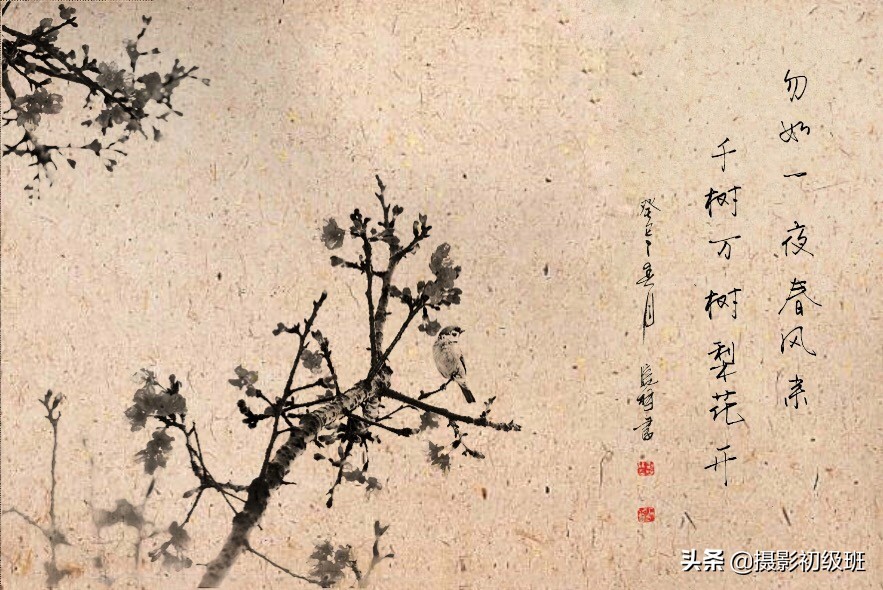 勿如一夜春风来
千树万树梨花开
癸巳春月 书
头条 @摄影初级班